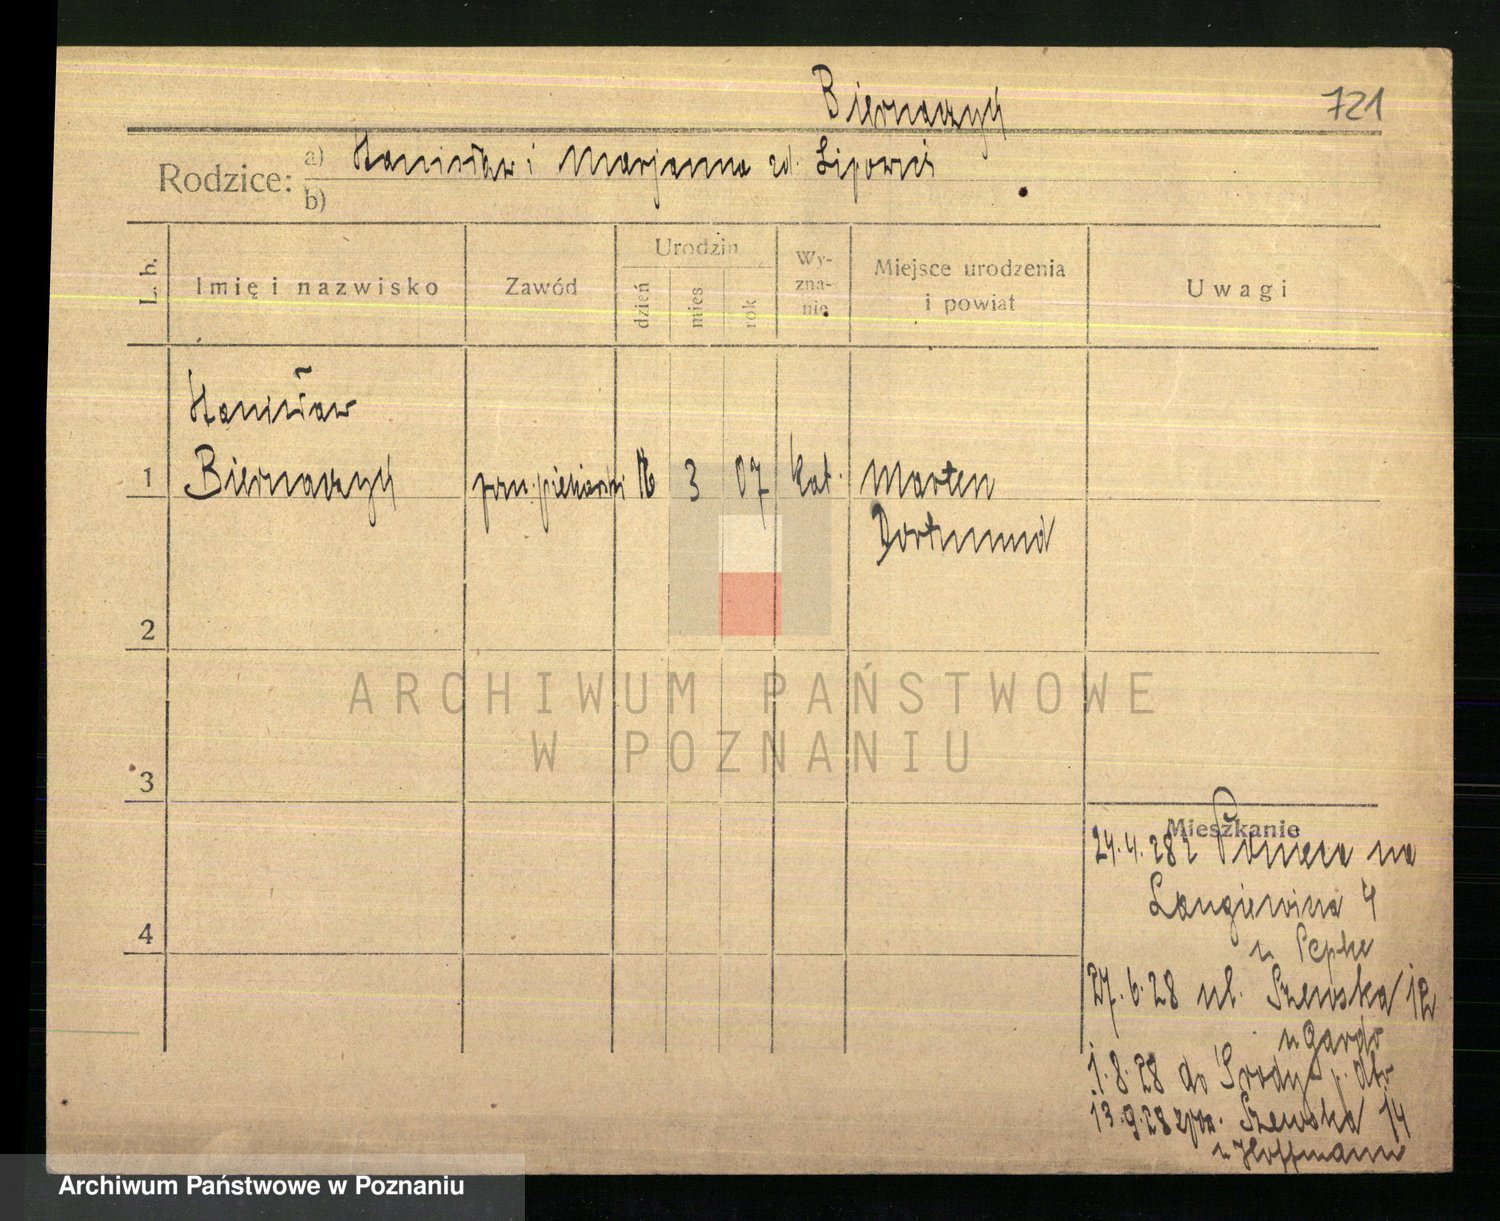 Biernaczyk
721
Rodzice: a) Stanisław i Marjanna zd.
b)
L. b. Imię i nazwisko Zawód Urodzin dzień mies rok Wy-zna-nie Miejsce urodzenia i powiat Uwagi
Stanisław
1 Biernaczyk pom. piekarski 3 07 kat. Marten
Dortmund
2
ARCHIWUM PAŃSTWOWE
W POZNANIU
3
Mieszkanie
24.4.28 z na
Langiewicza 4
u
27.6.28 ul. Szewska 12
u
1.8.28 do Środy
13.9.28 Szewska 14
u Hoffmann
Archiwum Państwowe w Poznaniu
4